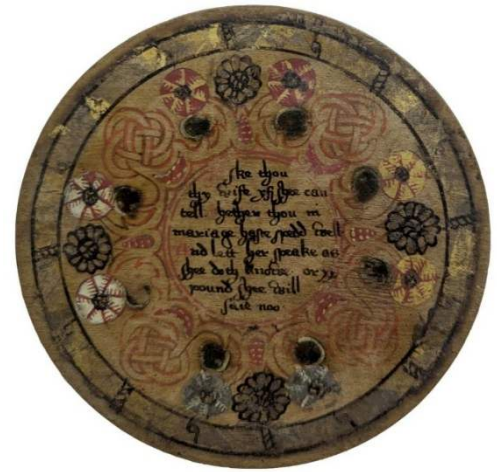 ske thou
thy wife yf shee can
tell hether thou in
mariage haste speed well
nd lett her speake as
shee doth knowe or xx
pound shee will
saie noo